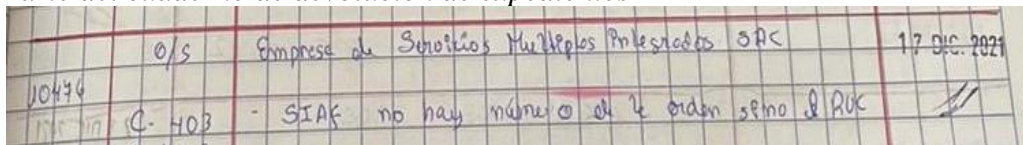 O/S Empresa de Servicios Multiples Integrados SAC 17 DIC. 2021
10476
C-403 - SIAF no hay número de orden sino RUC